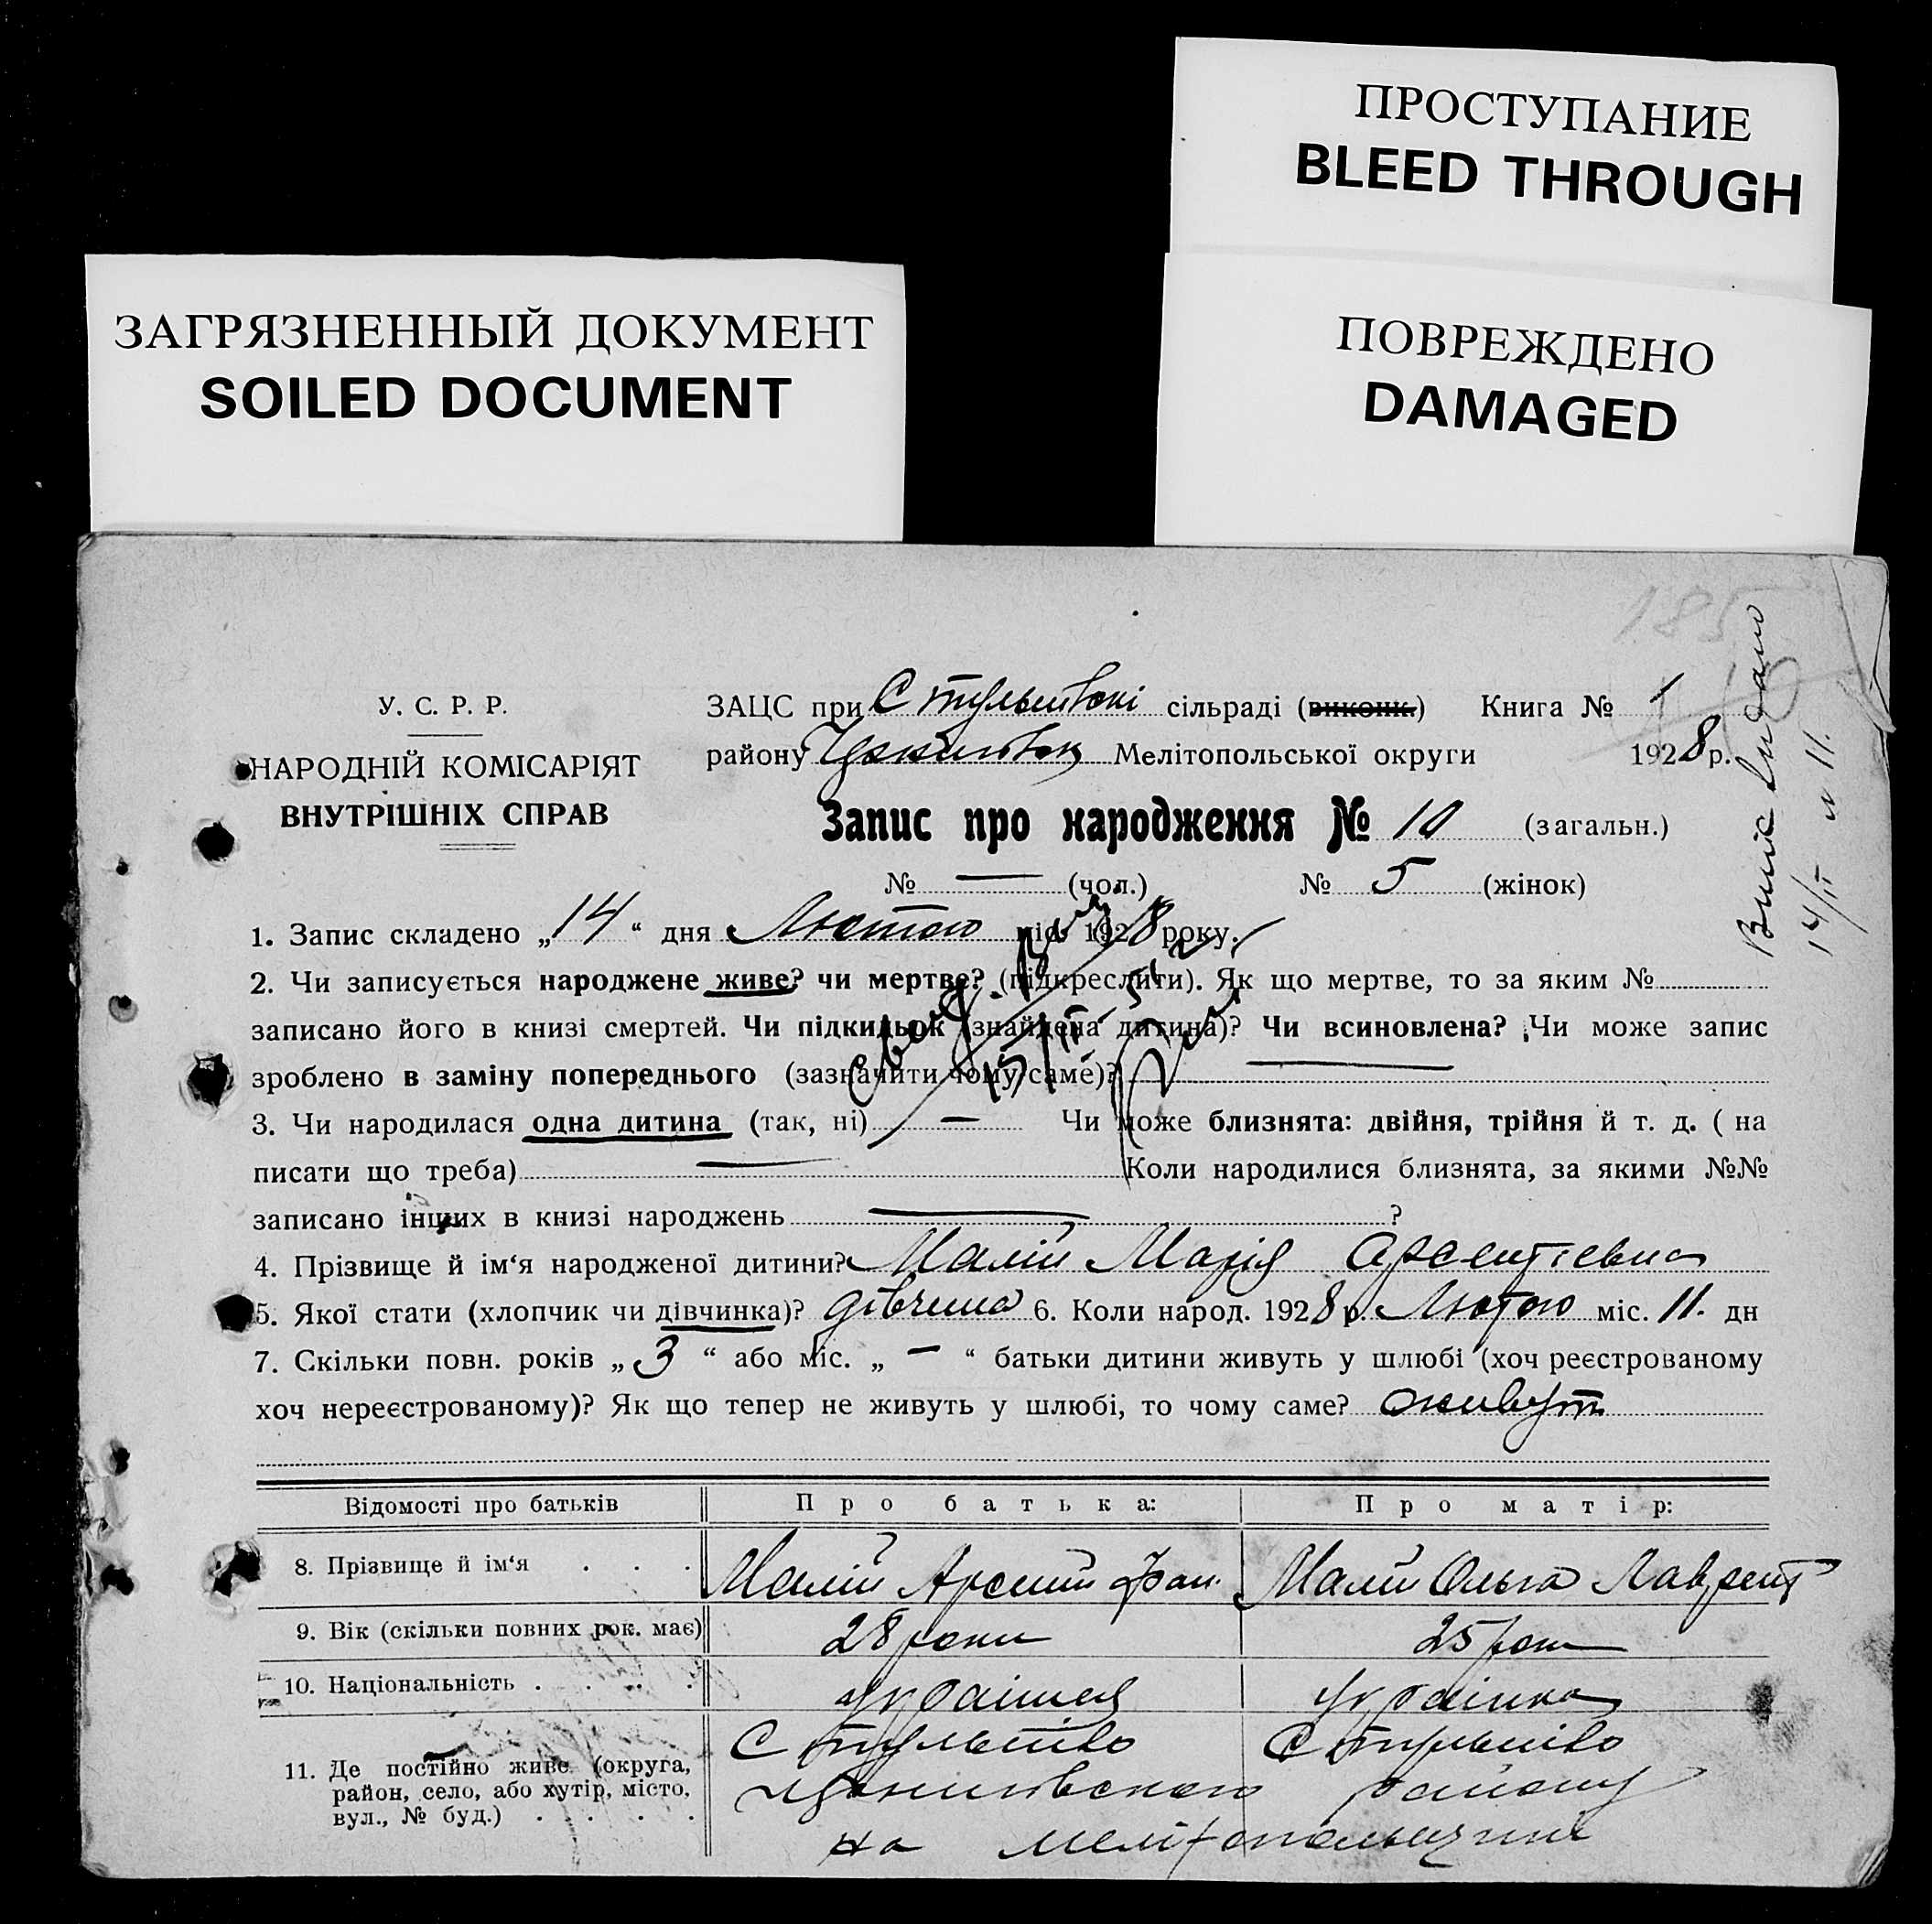 ПРОСТУПАНИЕ
BLEED THROUGH
ЗАГРЯЗНЕННЫЙ ДОКУМЕНТ
SOILED DOCUMENT
ПОВРЕЖДЕНО
DAMAGED
185
У. С. Р. Р.
НАРОДНІЙ КОМІСАРІЯТ
ВНУТРІШНІХ СПРАВ
ЗАЦС при сільраді (виконк.) Книга № 1
району Мелітопольської округи 1928 р.
Запис про народження № 10 (загальн.)
№ — (чол.) № 5 (жінок)
14/II № 11.
1. Запис складено „14“ дня Лютого міс. 1928 року.
2. Чи записується народжене живе? чи мертве? (підкреслити). Як що мертве, то за яким №
записано його в книзі смертей. Чи підкидьок (знайдена дитина)? Чи всиновлена? Чи може запис
зроблено в заміну попереднього (зазначити чому саме)? —
3. Чи народилася одна дитина (так, ні) — Чи може близнята: двійня, трійня й т. д. ( на
писати що треба) — Коли народилися близнята, за якими №№
записано інших в книзі народжень — ?
4. Прізвище й ім‘я народженої дитини? Малій Марія Арсентіевна
5. Якої стати (хлопчик чи дівчинка)? дівчина 6. Коли народ. 1928 р. Лютого міс. 11. дн
7. Скільки повн. років „3“ або міс. „—“ батьки дитини живуть у шлюбі (хоч реєстрованому
хоч нереєстрованому)? Як що тепер не живуть у шлюбі, то чому саме? живут
Відомості про батьків Про батька: Про матір:
8. Прізвище й ім‘я . . . Малій Арсеній Малій Ольга Лаврент
9. Вік (скільки повних рок. має) 28 роки 25 рок
10. Національність . . . . українец українка
11. Де постійно живе (округа,
район, село, або хутір, місто,
вул., № буд.) . . . .
району
на мелітопольщині